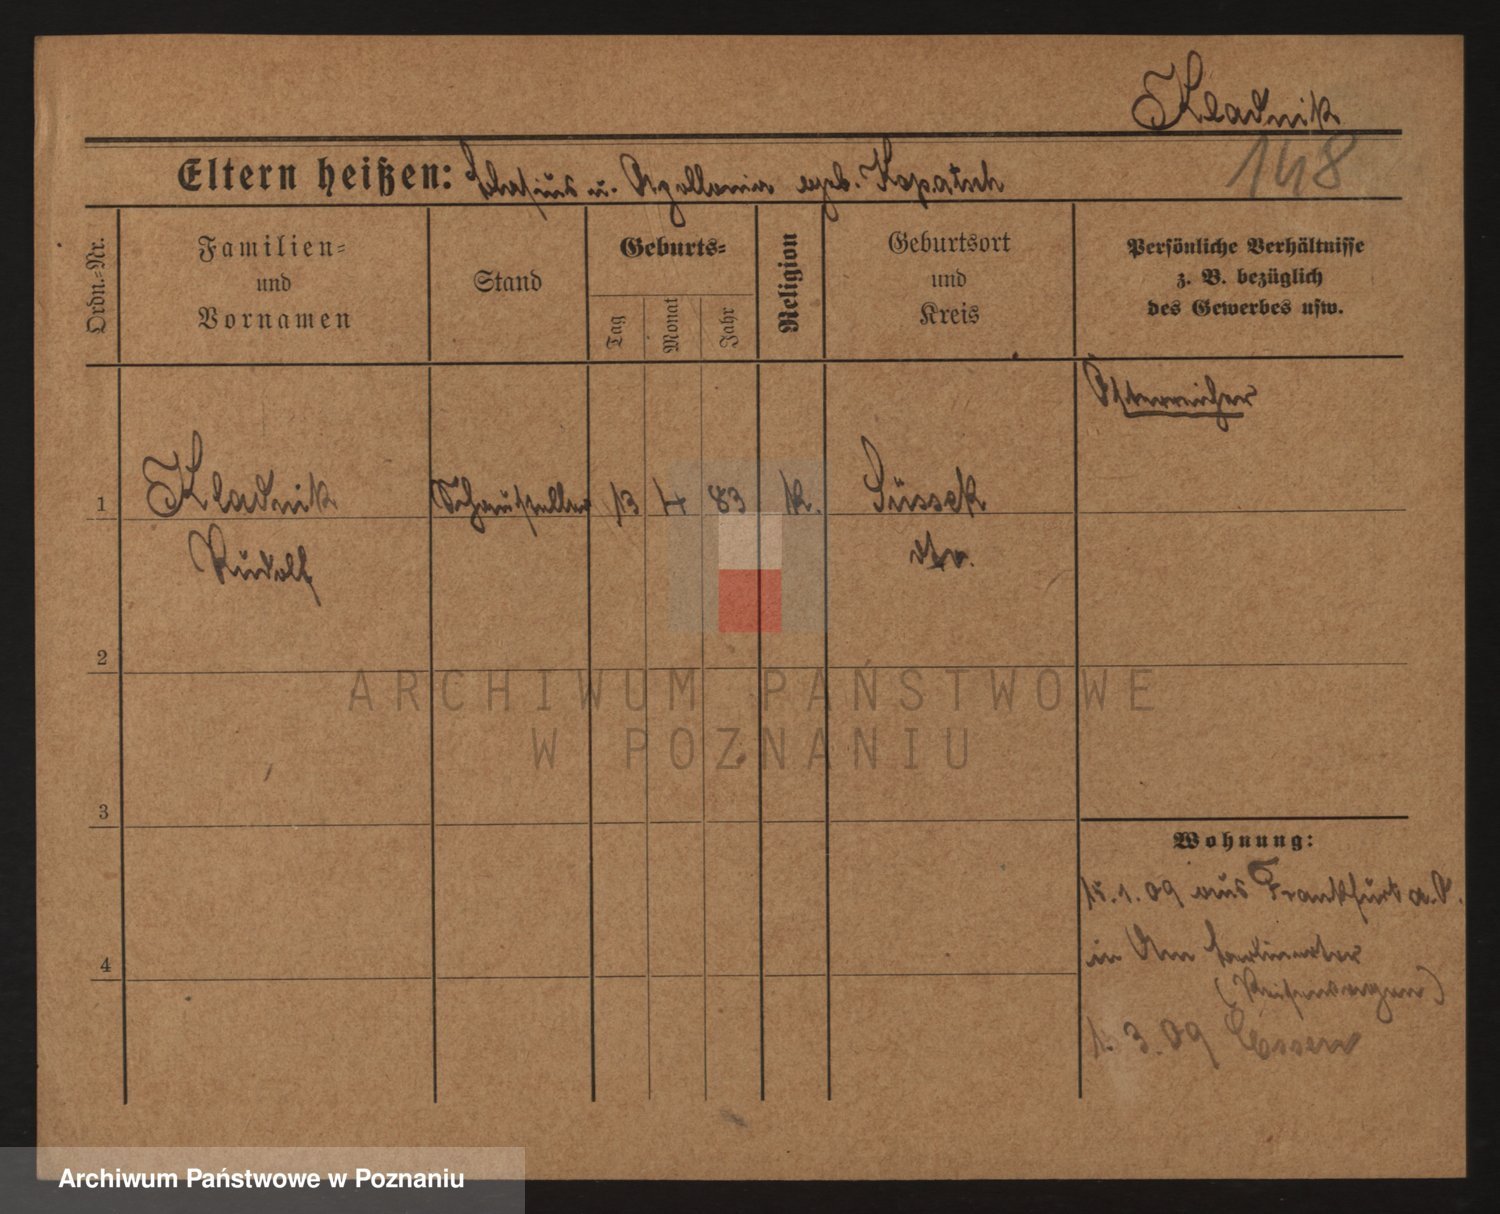 Kladnik
148
Eltern heißen: Blasius u. Apollonia geb. Kopatsch
Ordn.=Nr.
Familien=
und
Vornamen
Stand
Geburts=
Tag
Monat
Jahr
Religion
Geburtsort
und
Kreis
Persönliche Verhältnisse
z. B. bezüglich
des Gewerbes usw.
Österreicher
1
Kladnik
Rudolf
Schausteller
13
4
83
k.
Süssek
dto.
2
3
4
Wohnung:
15.1.09 aus Frankfurt a.O.
in Am Berlinertor
(Reisewagen)
1.3.09 Essen
ARCHIWUM PAŃSTWOWE
W POZNANIU
Archiwum Państwowe w Poznaniu